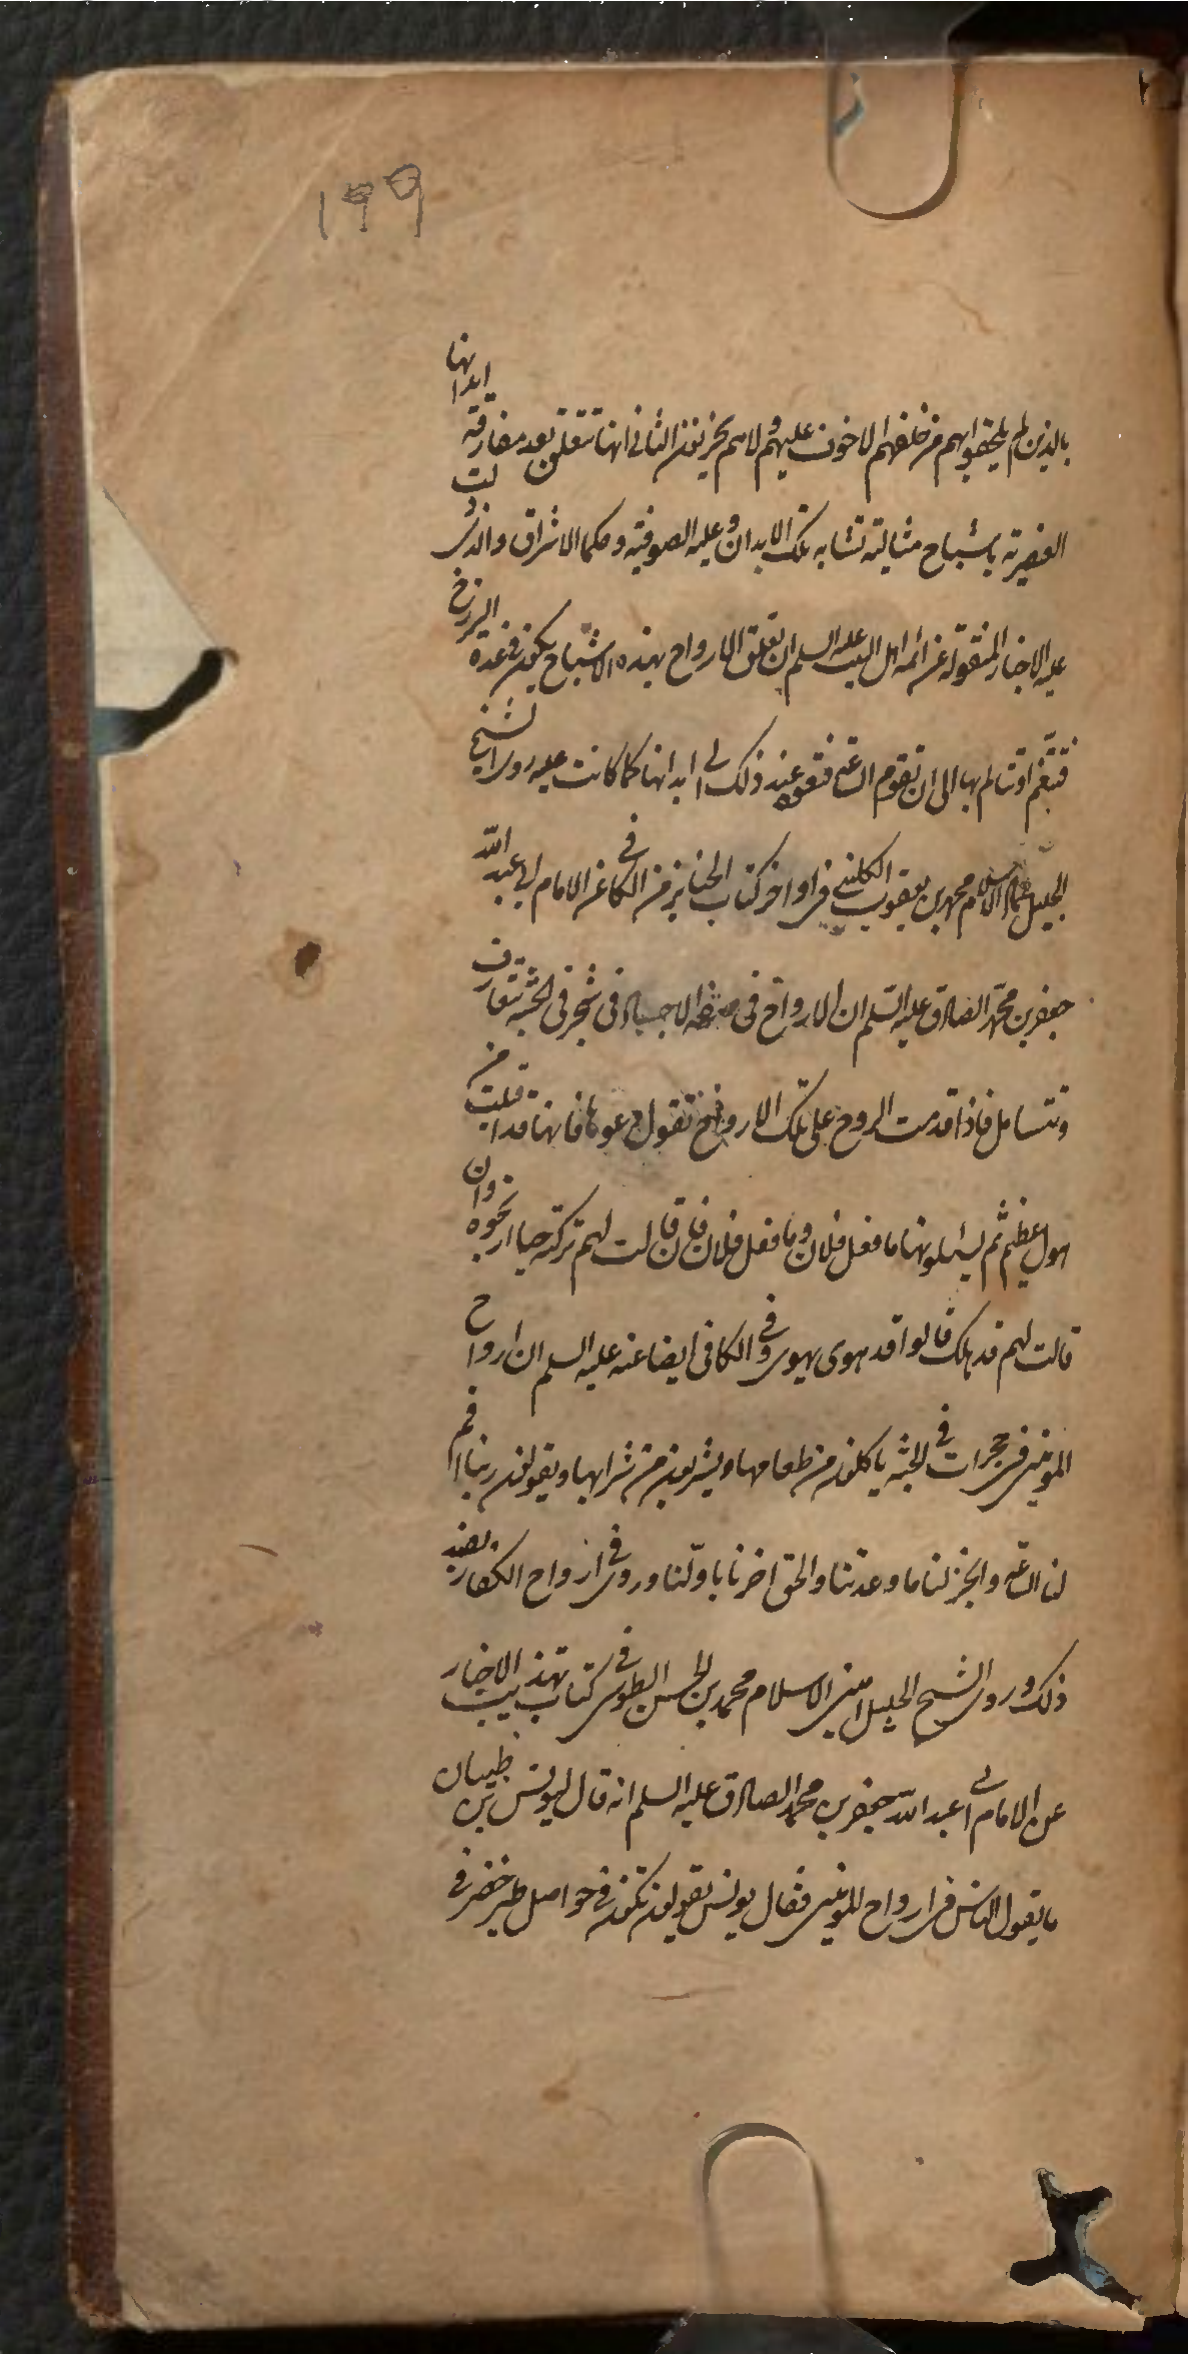 ۱۹۹
بالذين لم يلحقوا بهم من خلفهم الا خوف عليهم ولا هم يحزنون الثانى انها تتعلق بعد مفارقة ابدانها
العنصرية باشباح مثالية تشابه تلك الابدان وعليه الصوفية وحكما الاشراق والذى دلت
عليه الاخبار المنقولة عن ائمة اهل البيت عليه السلم ان تعلق الارواح بهذه الاشباح يكون فى مدة البرزخ
فتتنعم او تتالم بها الى ان تقوم الساعة فتعود عند ذلك الى ابدانها كما كانت عليه روى الشيخ
الجليل عماد الاسلام محمد بن يعقوب الكلينى فى اواخر كتاب الجنايز من الكافى عن الامام ابى عبد الله
جعفر بن محمد الصادق عليه السلم ان الارواح فى صفة الاجساد فى شجر فى الجنة تتعارف
وتتسامل فاذا قدمت الروح على تلك الارواح تقول دعوها فانها قد اقبلت من
هول عظيم ثم يسئلونها ما فعل فلان وما فعل فلان فان قالت لهم تركته حيا ارتجوه وان
قالت لهم قد هلك قالوا قد هوى يهوى وفى الكافى ايضا عنه عليه السلم ان ارواح
المومنين فى حجرات فى الجنة ياكلون من طعامها ويشربون من شرابها ويقولون ربنا اقم
لنا الساعة وانجز لنا ما وعدتنا والحق اخرنا باولنا وروى فى ارواح الكفار بضد
ذلك وروى الشيخ الجليل امين الاسلام محمد بن الحسن الطوسى فى كتاب تهذيب الاخبار
عن الامام ابى عبد الله جعفر بن محمد الصادق عليه السلم انه قال ليونس بن ظبيان
ما يقول الناس فى ارواح المومنين فقال يونس يقولون تكون فى حواصل طير خضر فى